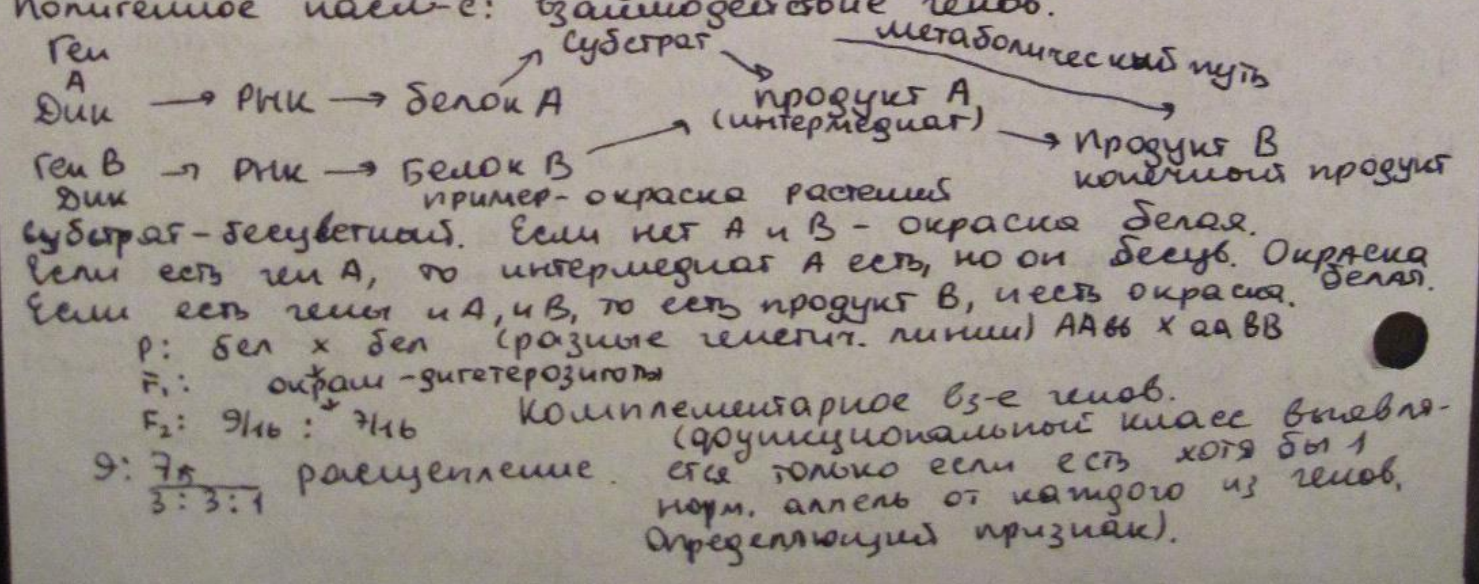 Полигенное насл-е: взаимодействие генов.
Ген А Дик → РНК → белок А ↗ Субстрат ↘ продукт А (интермедиат) → Продукт В конечный продукт
метаболический путь
Ген В Дик → РНК → Белок В ↗
пример - окраска растений
Субстрат - бесцветный. Если нет А и В - окраска белая.
Если есть ген А, то интермедиат А есть, но он бесцв. Окраска белая.
Если есть гены и А, и В, то есть продукт В, и есть окраска.
P: бел × бел (разные генетич. линии) ААвв × ааВВ
F₁: окраш - дигетерозиготы
F₂: 9/16 : 7/16 Комплементарное вз-е генов.
(функциональный класс выявля-
9: 7 расщепление. ется только если есть хотя бы 1
3 : 3 : 1 норм. аллель от каждого из генов,
определяющий признак).